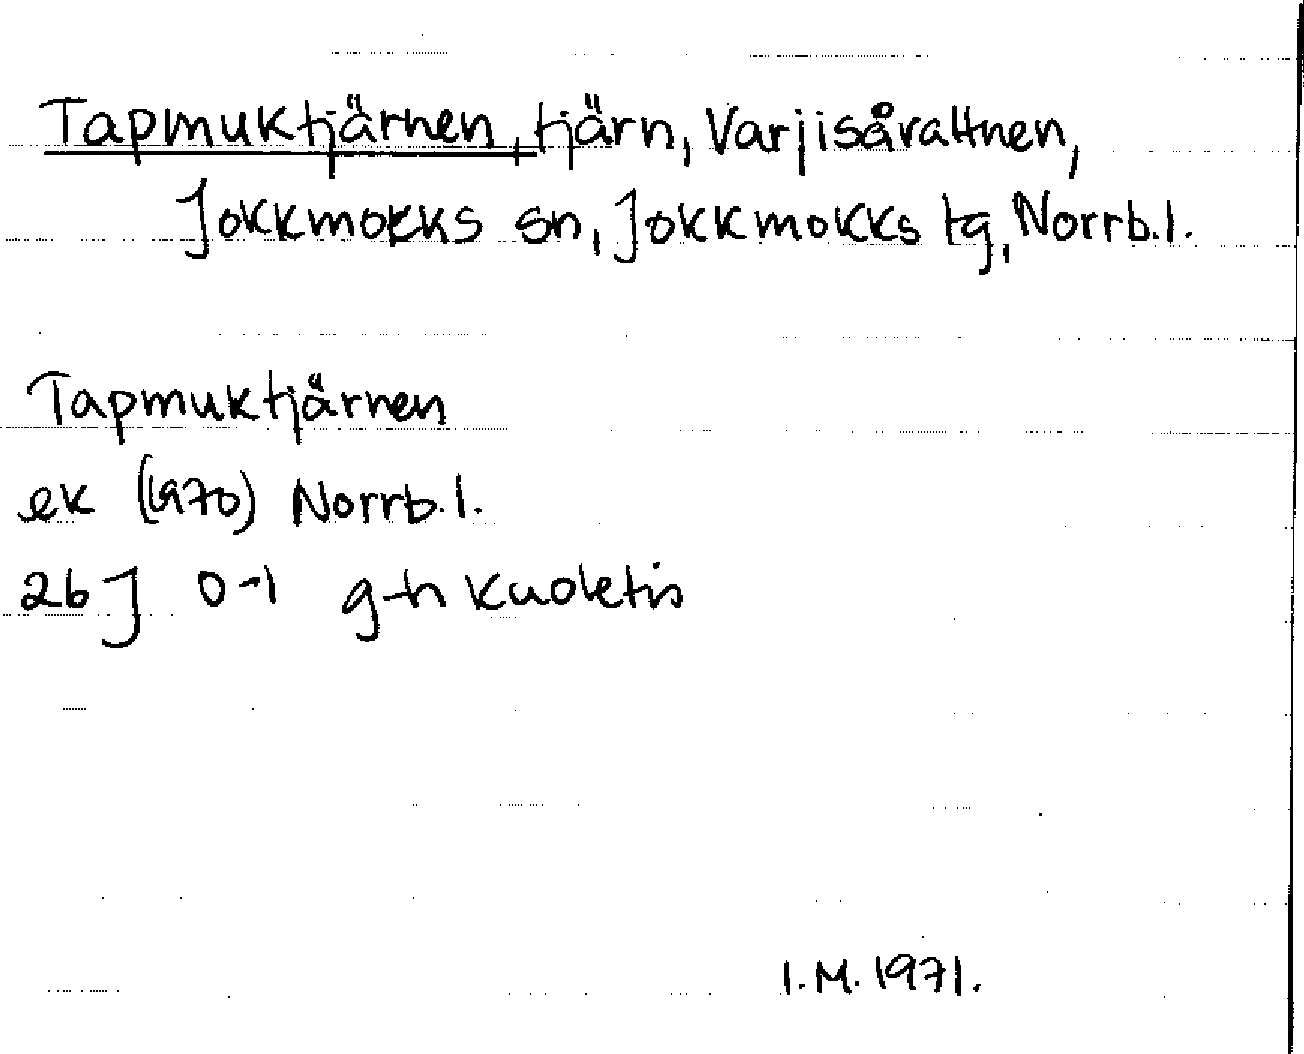 Tapmuktjärnen, tjärn, Varjisåvattnen,
Jokkmokks sn, Jokkmokks tg, Norrb.l.
Tapmuktjärnen
ek (1970) Norrb.l.
26 J 0-1 g-h Kuoletis
I.M. 1971.